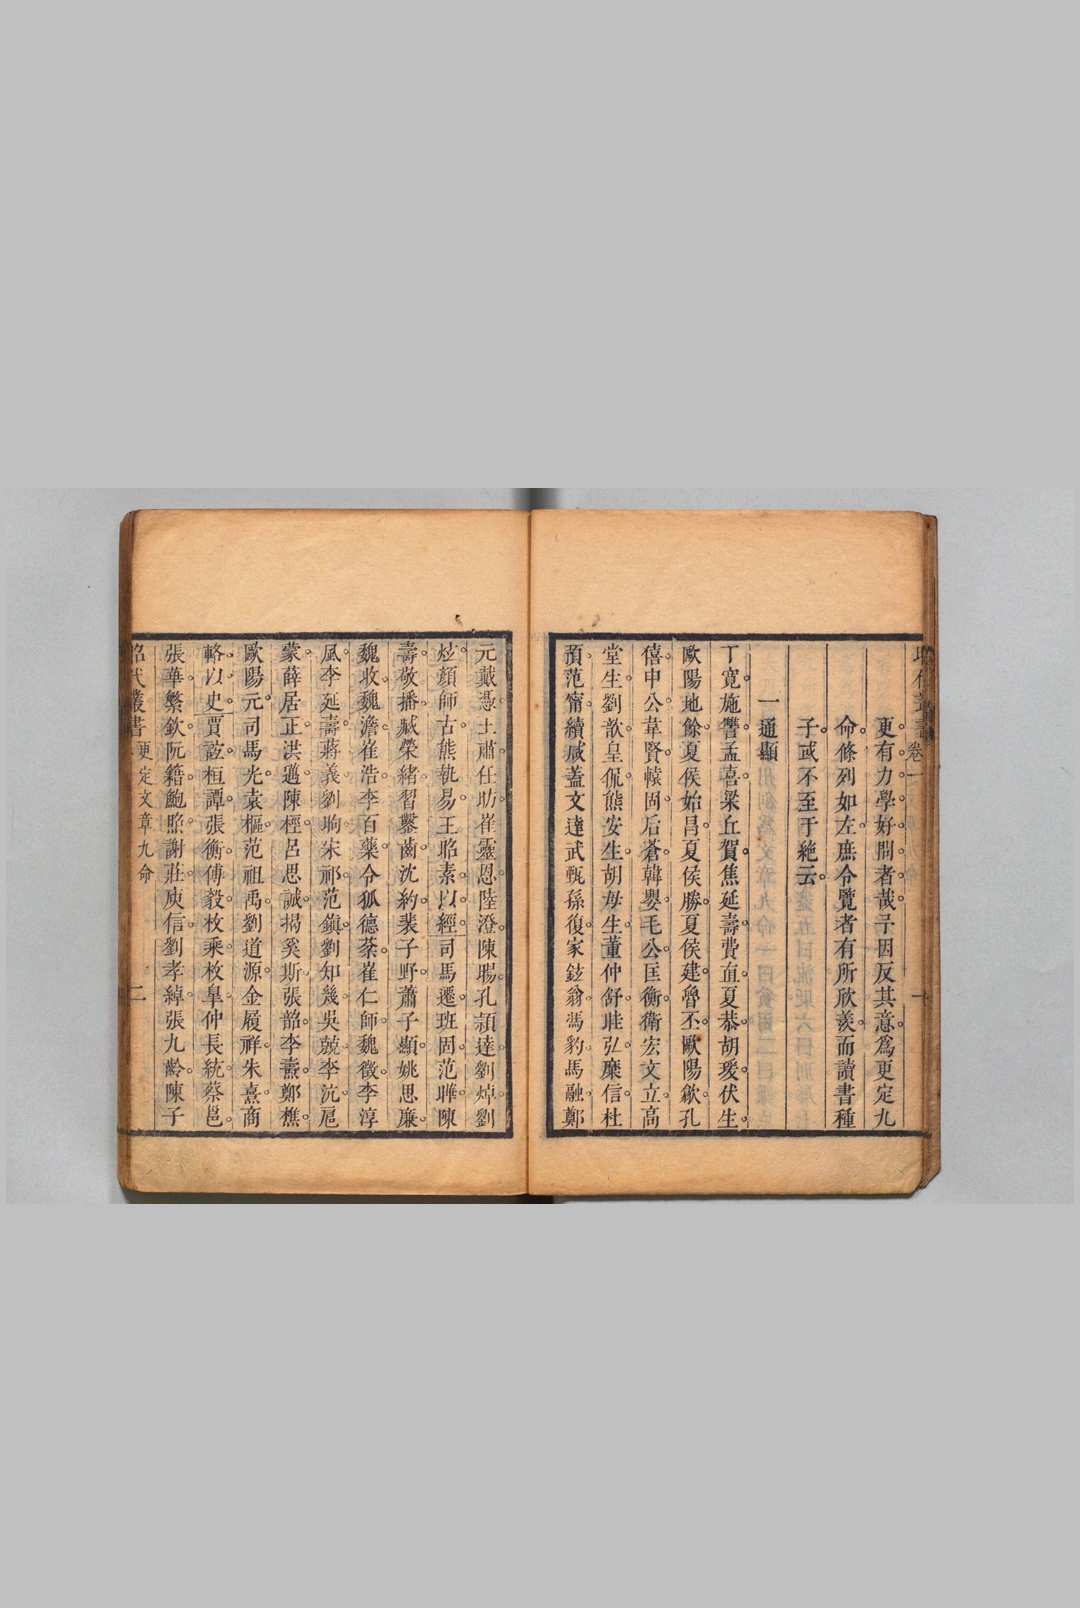 昭代叢書 卷一
更有力學好問者哉予因反其意爲更定九
命條列如左庶令覽者有所欣羨而讀書種
子或不至于絶云
一通顯
丁寬施讐孟喜梁丘賀焦延壽費直夏恭胡瑗伏生
歐陽地餘夏侯始昌夏侯勝夏侯建魯丕歐陽歙孔
僖申公韋賢轅固后蒼韓嬰毛公匡衡衛宏文立高
堂生劉歆皇侃熊安生胡母生董仲舒眭弘糜信杜
預范甯續咸蓋文達武甄孫復家鉉翁馮豹馬融鄭
元戴憑王肅任昉崔靈恩陸澄陳暘孔頴達劉焯劉
炫顔師古熊執易王昭素以經司馬遷班固范曄陳
壽敬播臧榮緒習鑿齒沈約裴子野蕭子顯姚思廉
魏收魏澹崔浩李百藥令狐德棻崔仁師魏徵李淳
風李延壽蔣義劉昫宋祁范鎭劉知幾吳兢李沆扈
蒙薛居正洪邁陳桱呂思誠揭奚斯張韶李燾鄭樵
歐陽元司馬光袁樞范祖禹劉道源金履祥朱熹商
輅以史賈誼桓譚張衡傅毅枚乘枚臯仲長統蔡邕
張華繁欽阮籍鮑照謝莊庾信劉孝綽張九齡陳子
昭代叢書 更定文章九命 二